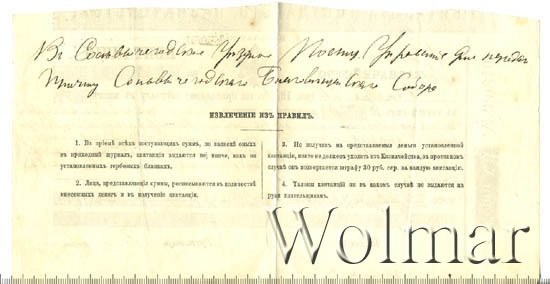 Въ Сольвычегодское Уѣздное
Причту Сольвычегодскаго Благовѣщенскаго Собора
ИЗВЛЕЧЕНІЕ ИЗЪ ПРАВИЛЪ.
1. Въ пріемѣ всѣхъ поступающихъ суммъ, по запискѣ оныхъ
въ приходный журналъ, квитанціи выдаются не иначе, какъ на
установленныхъ гербовыхъ бланкахъ.
2. Лица, представляющія суммы, росписываются въ количествѣ
внесенныхъ денегъ и въ полученіи квитанціи.
3. Не получивъ на представляемыя деньги установленной
квитанціи, никто не долженъ уходить изъ Казначейства, въ противномъ
случаѣ онъ подвергается штрафу 30 руб. сер. за каждую квитанцію.
4. Талоны квитанцій ни въ какомъ случаѣ не выдаются на
руки плательщикамъ.
Wolmar